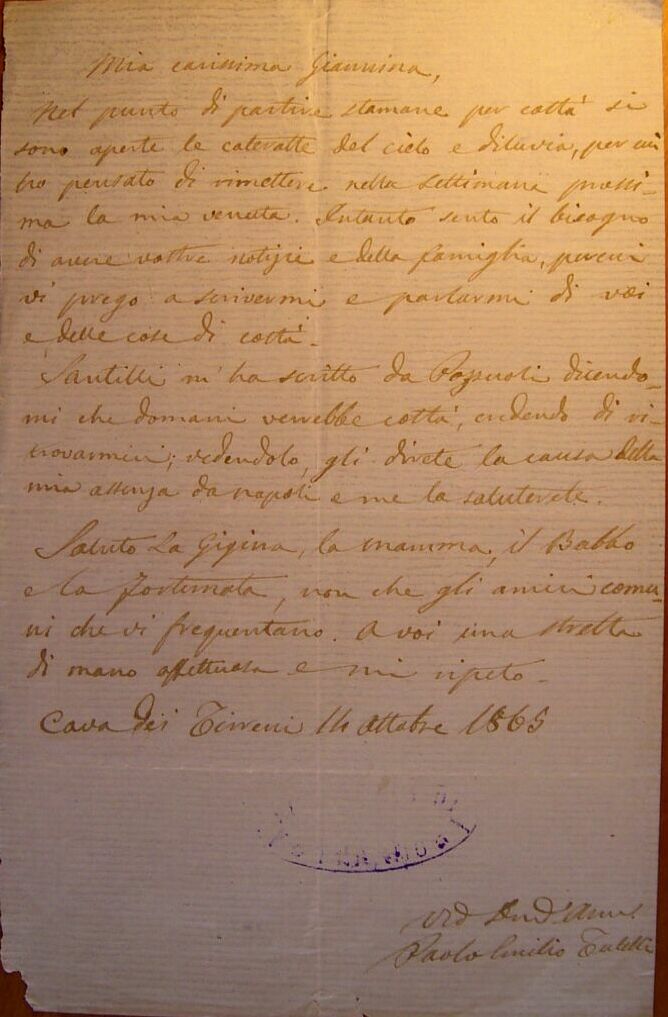 Mia carissima Giannina,
Nel punto di partire stamane per costà si
sono aperte le cateratte del cielo e diluvia, per cui
ho pensato di rimettere nella settimana prossi-
ma la mia venuta. Intanto sento il bisogno
di avere vostre notizie e della famiglia, percui
vi prego a scrivermi e parlarmi di voi
e delle cose di costà.
Santilli m'ha scritto da Pozzuoli dicendo-
mi che domani verrebbe costà, credendo di ri-
trovarmici; vedendolo, gli direte la causa della
mia assenza da Napoli e me lo saluterete.
Saluto la Gigina, la mamma, il Babbo
e la Fortunata, non che gli amici comu-
ni che vi frequentano. A voi una stretta
di mano affettuosa e mi ripeto.
Cava dei Tirreni 14 Ottobre 1865
Paolo Emilio